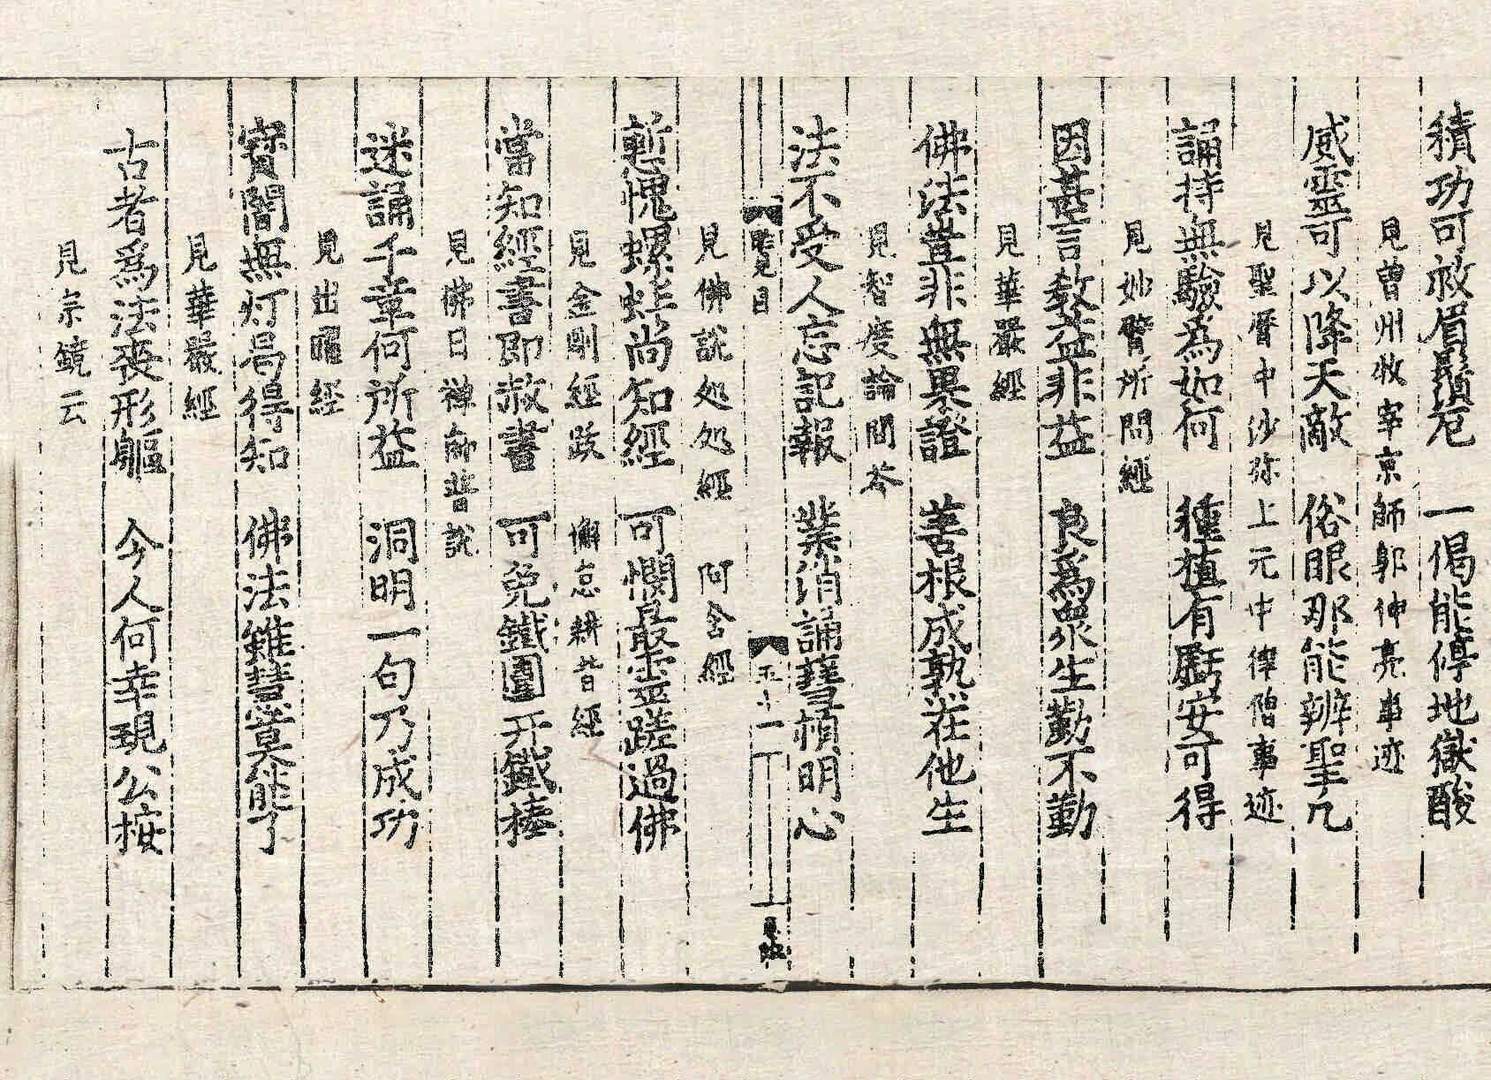 積功可救眉鬚厄　一偈能停地獄酸
見曹州牧宰京師郭神亮事迹
威靈可以降天敵　俗眼那能辨聖凡
見聖曆中沙弥上元中律僧事迹
誦持無驗為如何　種植有　安可得
見妙臂所問經
因甚言教益非益　良爲衆生勤不勤
見華嚴經
佛法豈非無果證　善根成熟在他生
見智度論問答
法不受人忘記報　業消誦彗頼明心
五十一
見佛說処処經　阿含經
慙愧螺蚌尚知經　可憫最灵蹉過佛
見金剛經跋　懈怠耕者經
當知經書即赦書　可免鐵圍并鐵棒
見佛日禅師普說
迷誦千章何所益　洞明一句乃成功
見出曜經
寳闇無灯曷得知　佛法雖慧莫能了
見華嚴經
古者爲法喪形軀　今人何幸現公按
見宗鏡云